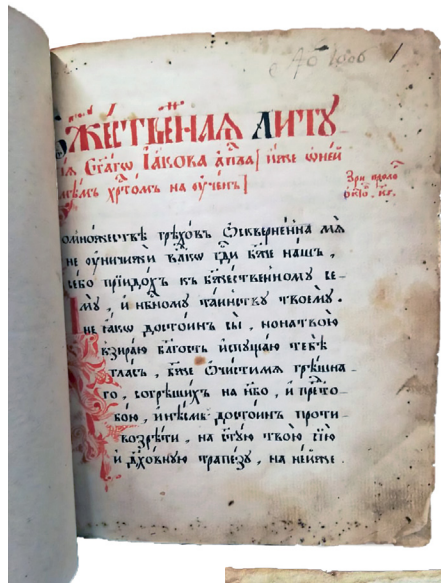 Аѡ 1806 1
Бж҃ественная Литꙋ
гія Ст҃агѡ Іакова ап҃ла [ иже ѿ ней
са́мѣмъ хрⷭ҇томъ наꙋченъ ]
Зри
Вомножествѣ грѣховъ ѡсквернена мѧ
не ѹничижи влⷣко гдⷭ҇и бж҃е нашъ,
се бо пріидохъ къ бж҃ественномꙋ се
мꙋ, и нбⷭ҇номꙋ таинствꙋ твоемꙋ.
Не ꙗко достоинъ сы, но на твою
взираю бл҃гость испꙋщаю тебѣ
гласъ, бж҃е ѡчистимѧ грѣшна
го, согрѣшихъ на нб҃о, и пре тѡ
бою, и нѣсмь достоинъ проти
возрѣти, на ст҃ꙋю твою сїю
и дх҃овнꙋю трапезꙋ, на нейже